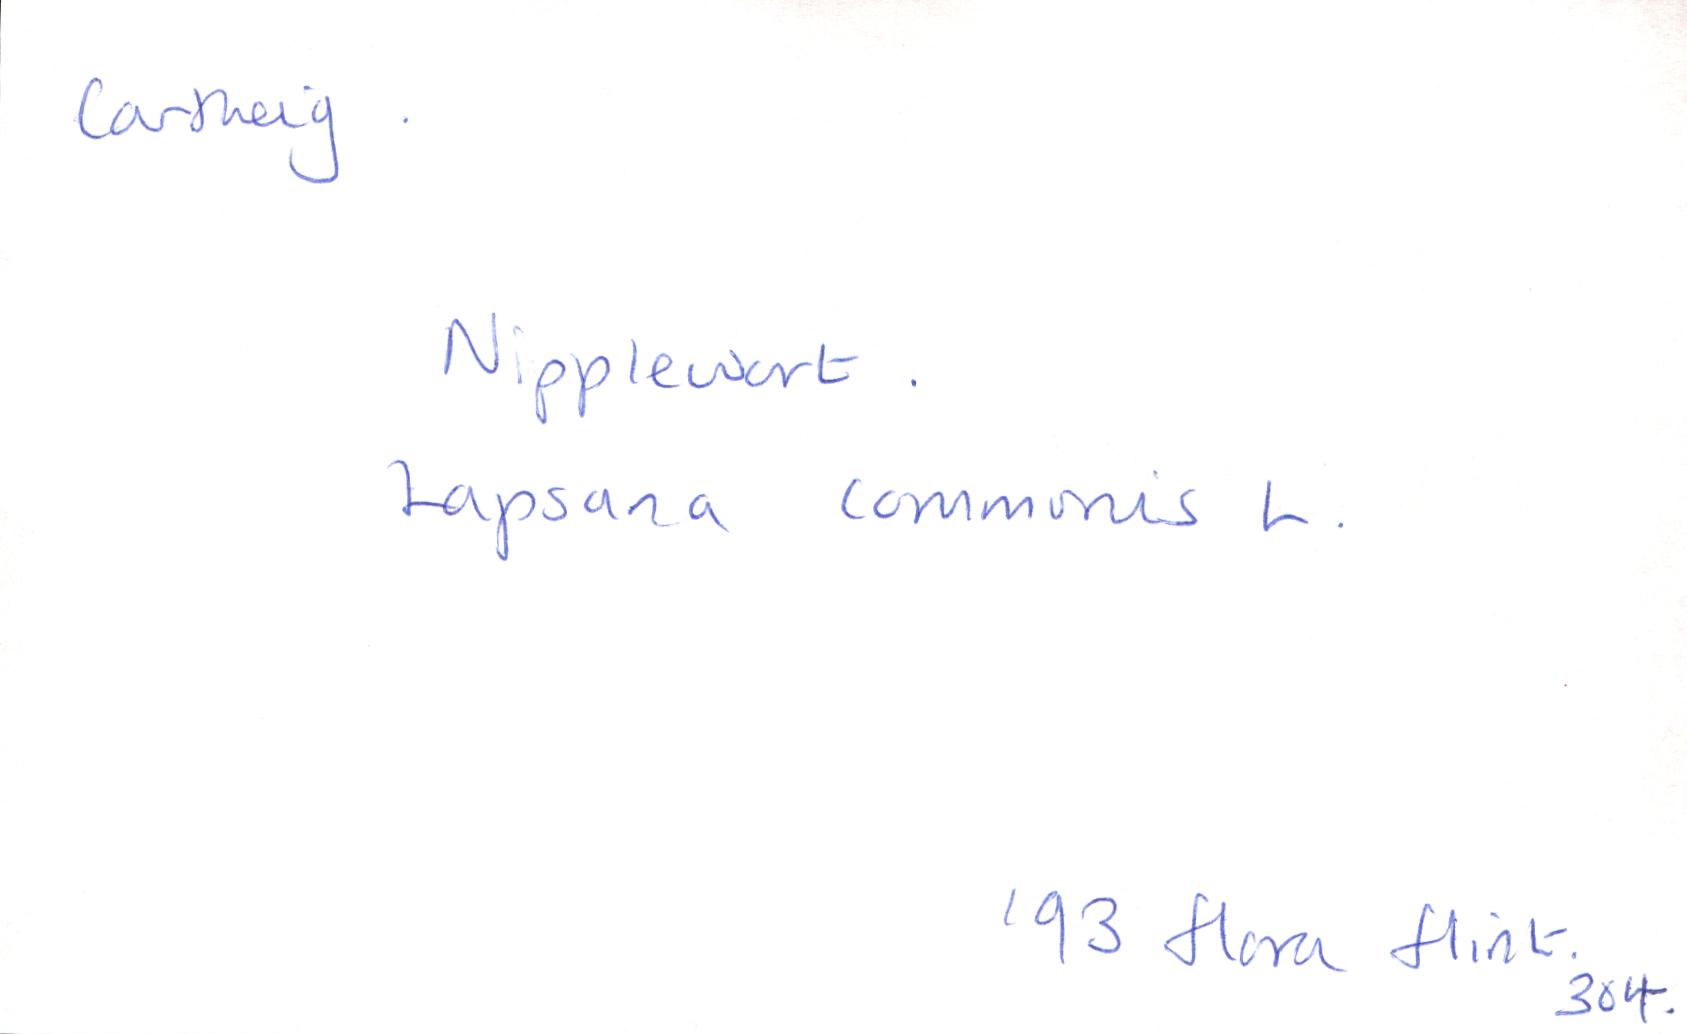 Cartheig.
Nipplewort.
Lapsana commonis L.
'93 Flora Flint.
304.